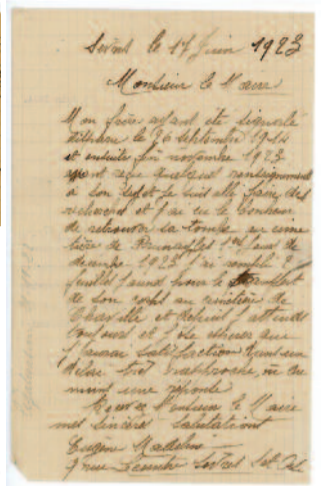 Sevres le 17 Juin 1923
Monsieur le Maire
Mon frère ayant été signalé
disparu le 26 septembre 1914
et ensuite fin novembre 1923
ayant reçu quelques renseignements
à son sujet je suis allé faire des
recherches et j'ai eu le bonheur
de retrouver sa tombe au cime
tière de
1923 j'ai rempli 2
feuilles pour le transfert
de son corps au cimetière de
Chaville et depuis j'attends
toujours et j'ose espérer que
j'aurai satisfaction dans un
délai très rapproché, ou du
moins une réponse
Recevez Monsieur le Maire
mes sincères salutations
Eugène Madeline
7 rue Sevres